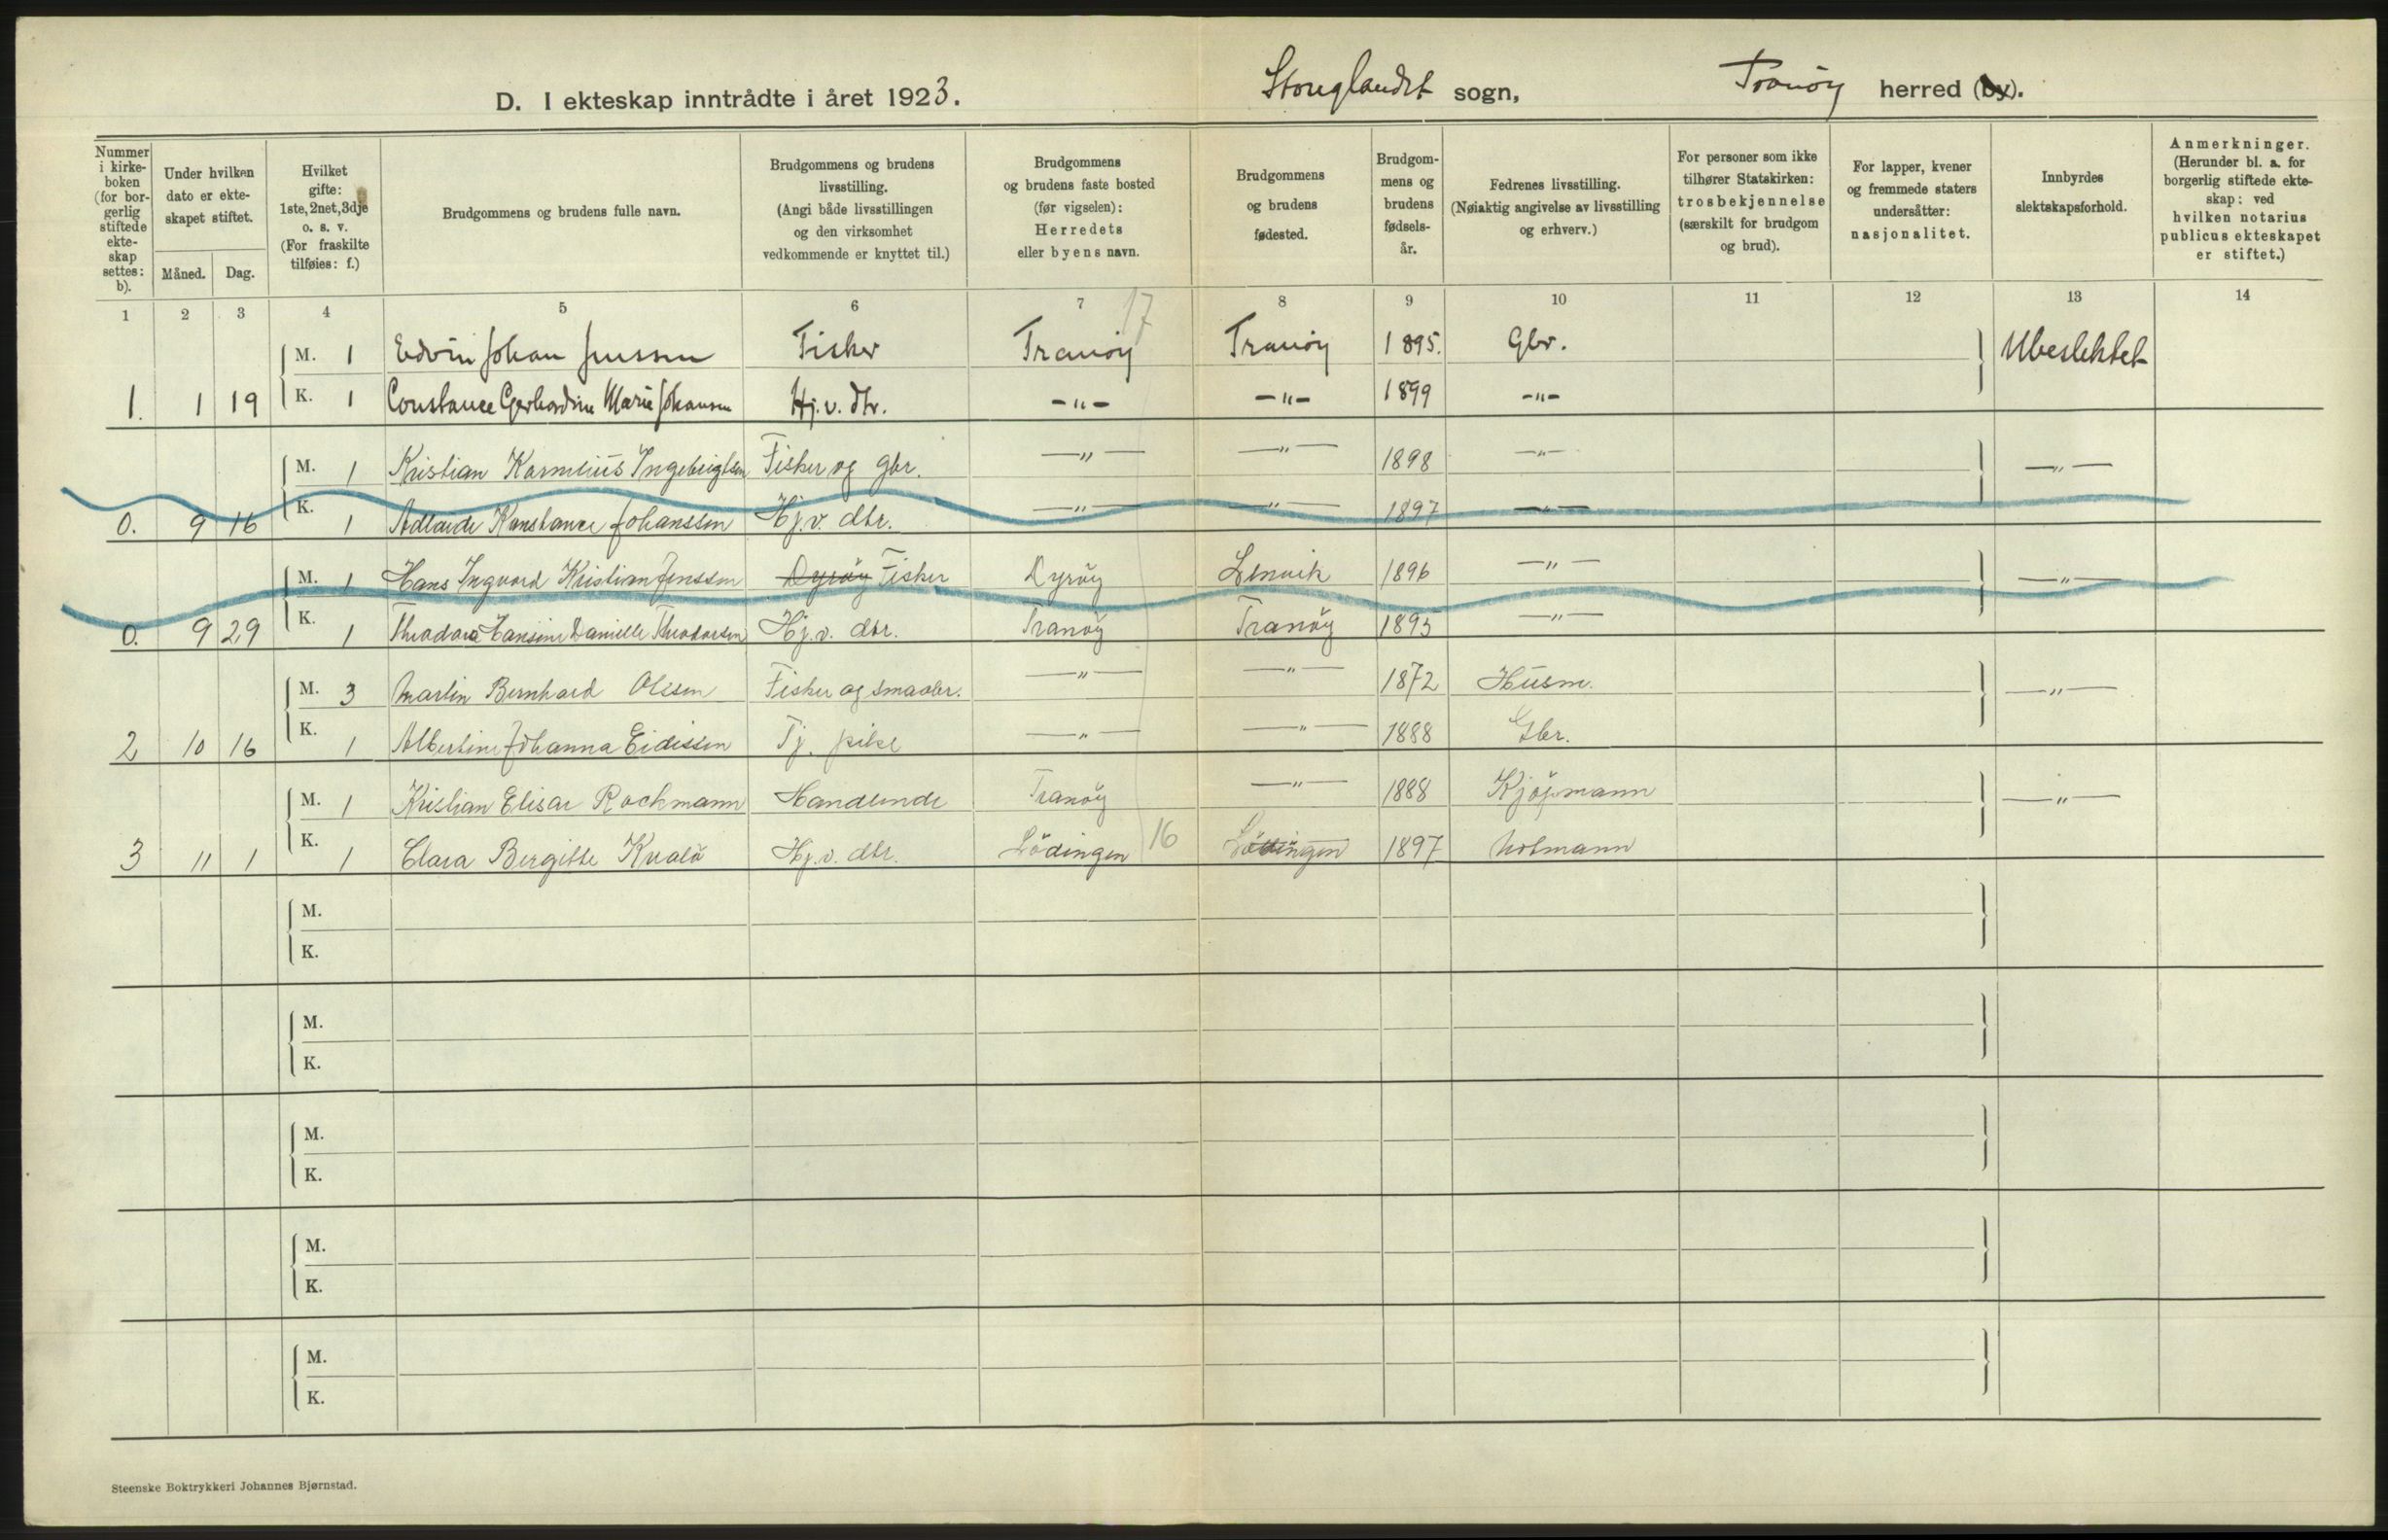 D. I ekteskap inntrådte i året 1923. Stonglandet sogn, Tranöy herred (by).
Nummer i kirke-boken (for bor-gerlig stiftede ekte-skap settes: b).
Under hvilken dato er ekte-skapet stiftet.
Måned. Dag.
Hvilket gifte: 1ste, 2net, 3dje o. s. v. (For fraskilte tilføies: f.)
Brudgommens og brudens fulle navn.
Brudgommens og brudens livsstilling. (Angi både livsstillingen og den virksomhet vedkommende er knyttet til.)
Brudgommens og brudens faste bosted (før vigselen): Herredets eller byens navn.
Brudgommens og brudens fødested.
Brudgom-mens og brudens fødsels-år.
Fedrenes livsstilling. (Nøiaktig angivelse av livsstilling og erhverv.)
For personer som ikke tilhører Statskirken: trosbekjennelse (særskilt for brudgom og brud).
For lapper, kvener og fremmede staters undersåtter: nasjonalitet.
Innbyrdes slektskapsforhold.
Anmerkninger. (Herunder bl. a. for borgerlig stiftede ekte-skap: ved hvilken notarius publicus ekteskapet er stiftet.)
1 2 3 4 5 6 7 8 9 10 11 12 13 14
17
M. 1 Edvin Johan Jenssen Fisker Tranöy Tranöy 1895. Gbr. Ubeslektet
1. 1 19 K. 1 Constance Gerhardine Marie Johansen Hj.v. dtr. -"- -"- 1899 -"-
M. 1 Kristian Kornelius Ingebrigtsen Fisker og gbr. -"- -"- 1898 -"- -"-
0. 9 16 K. 1 Adlaide Konstance Johanssen Hj.v. dtr. -"- -"- 1897 -"-
M. 1 Hans Ingvard Kristian Jenssen Dyröy Fisker Dyröy Lenvik 1896 -"- -"-
0. 9 29 K. 1 Theodora Hansine Danielle Theodorsen Hj.v. dtr. Tranöy Tranöy 1895 -"-
M. 3 Martin Bernhard Olsen Fisker og smaabr. -"- -"- 1872 Husm. -"-
2 10 16 K. 1 Albertine Johanna Eidissen Tj. pike -"- -"- 1888 Gbr.
M. 1 Kristian Elisar Rochmann Handlende Tranöy -"- 1888 Kjöpmann -"-
3 11 1 K. 1 Clara Bergitte Kvalö Hj.v. dtr. Lödingen 16 Lödingen 1897 Notmann
M.
K.
M.
K.
M.
K.
M.
K.
M.
K.
Steenske Boktrykkeri Johannes Bjørnstad.